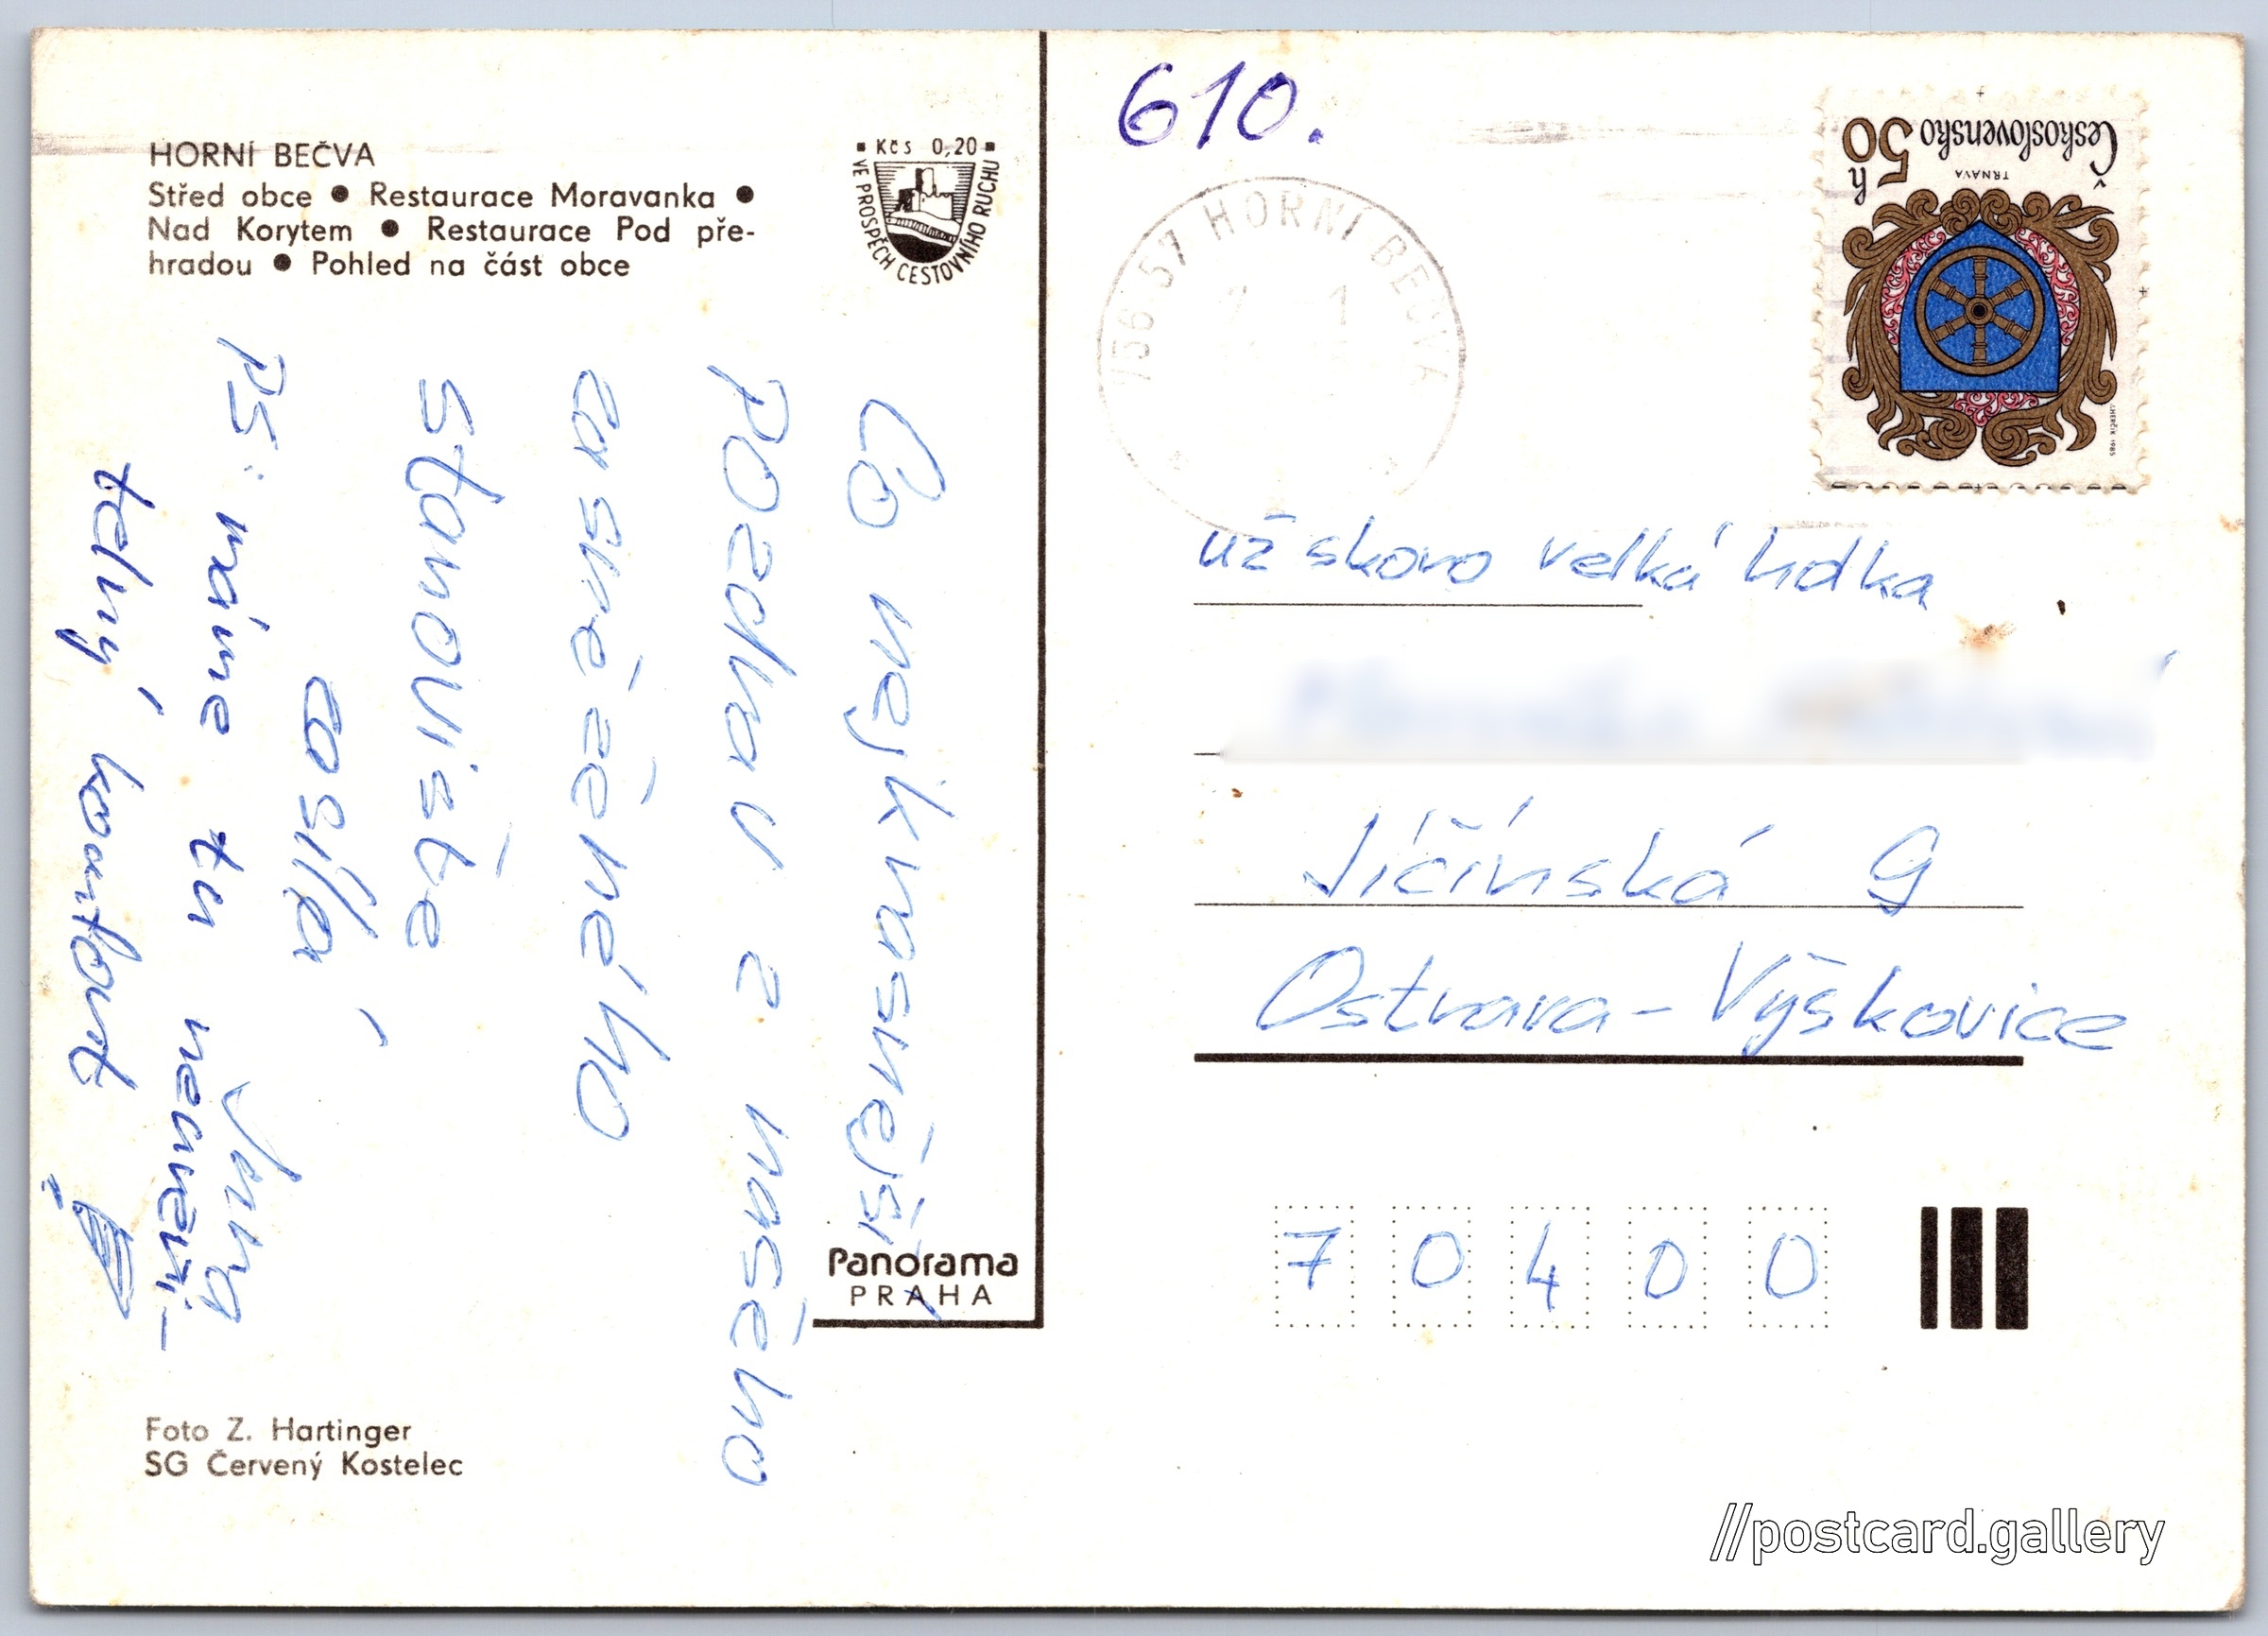 HORNÍ BEČVA
Střed obce ● Restaurace Moravanka ●
Nad Korytem ● Restaurace Pod pře-
hradou ● Pohled na část obce
Kčs 0,20
VE PROSPĚCH CESTOVNÍHO RUCHU
Co nejkrasnější
Pozdrav z našeho
zasněženého
stanoviště
posílá
Jirka
PS: máme tu neuvěři-
telný komfort
Panorama
PRAHA
Foto Z. Hartinger
SG Červený Kostelec
610.
756 57 HORNÍ BEČVA
Československo
50 h
TRNAVA
J.HERČÍK 1985
už skoro velká holka
Jičínská 9
Ostrava - Výškovice
7 0 4 0 0
//postcard.gallery